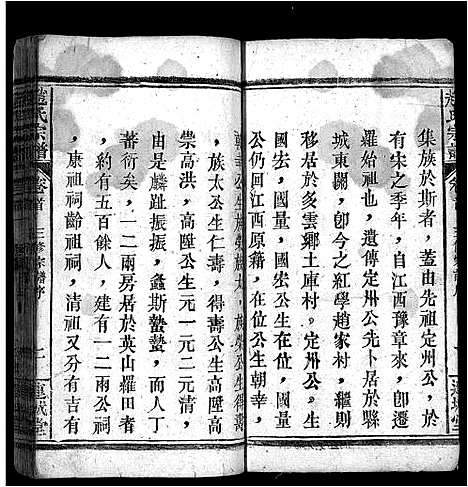 趙氏宗譜
集族於斯者，蓋由先祖定州公，於
有宋之季年，自江西豫章來，卽遷
羅始祖也，遺傳定州公先卜居於縣
城東關，卽今之紅學趙家村，繼則
移居於多雲鄉土庫村。定州公。生
國宏，國量，國宏公生在位，國量
公仍回江西原籍。在位公生朝幸，
，族太公生仁壽，仁壽公生高陞
崇高洪，高陞公生元一元二元清，
由是麟趾振振，螽斯蟄蟄，而人丁
蕃衍矣，一二兩房居於英山羅田者
，約有五百餘人，建有一二兩公祠
康祖祠齡祖祠，清祖又分有吉公
趙氏宗譜
卷首
三修宗譜序
十
連城堂